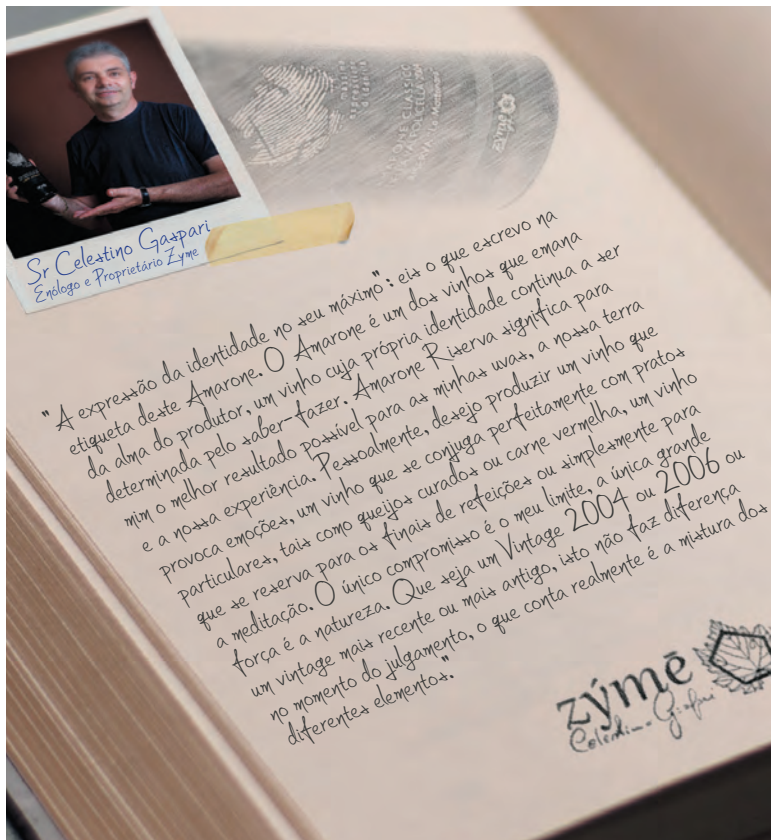 massima
espressione
d'identità
AMARONE CLASSICO
zýmē
Sr Celestino Gaspari
Enólogo e Proprietário Zyme
"A expressão da identidade no seu máximo": eis o que escrevo na
etiqueta deste Amarone. O Amarone é um dos vinhos que emana
da alma do produtor, um vinho cuja própria identidade continua a ser
determinada pelo saber-fazer. Amarone Riserva significa para
mim o melhor resultado possível para as minhas uvas, a nossa terra
e a nossa experiência. Pessoalmente, desejo produzir um vinho que
provoca emoções, um vinho que se conjuga perfeitamente com pratos
particulares, tais como queijos curados ou carne vermelha, um vinho
que se reserva para os finais de refeições ou simplesmente para
a meditação. O único compromisso é o meu limite, a única grande
força é a natureza. Que seja um Vintage 2004 ou 2006 ou
um vintage mais recente ou mais antigo, isto não faz diferença
no momento do julgamento, o que conta realmente é a mistura dos
diferentes elementos."
zýmē
Celestino Gaspari